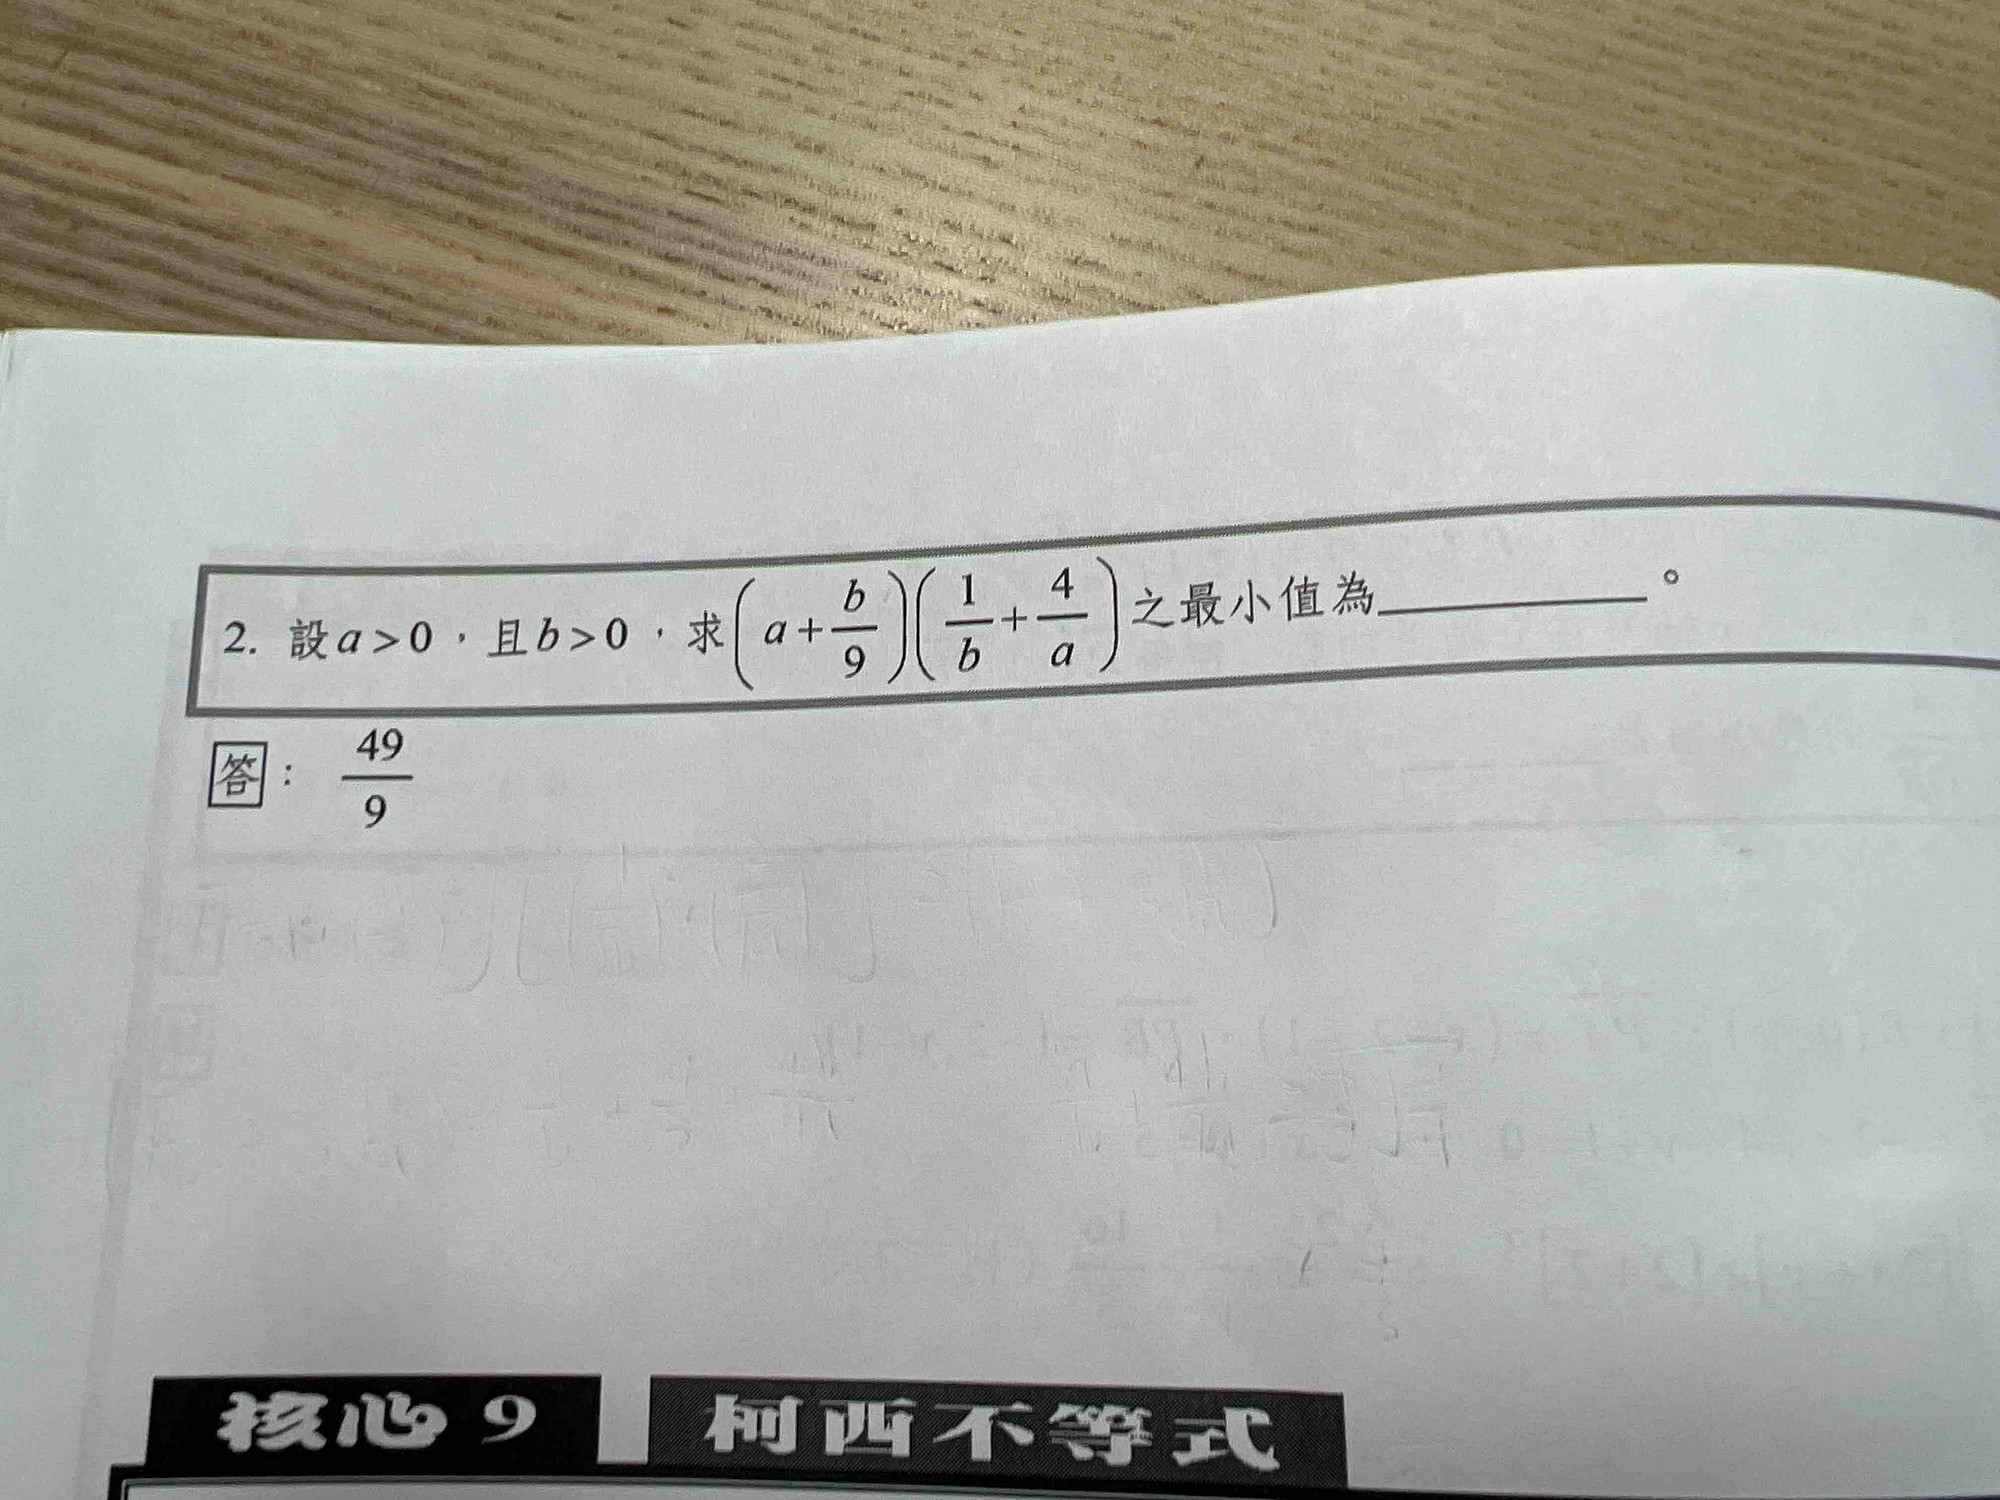 2. 設 a > 0，且 b > 0，求 (a + b/9)(1/b + 4/a) 之最小值為________。
答： 49/9
核心 9 柯西不等式